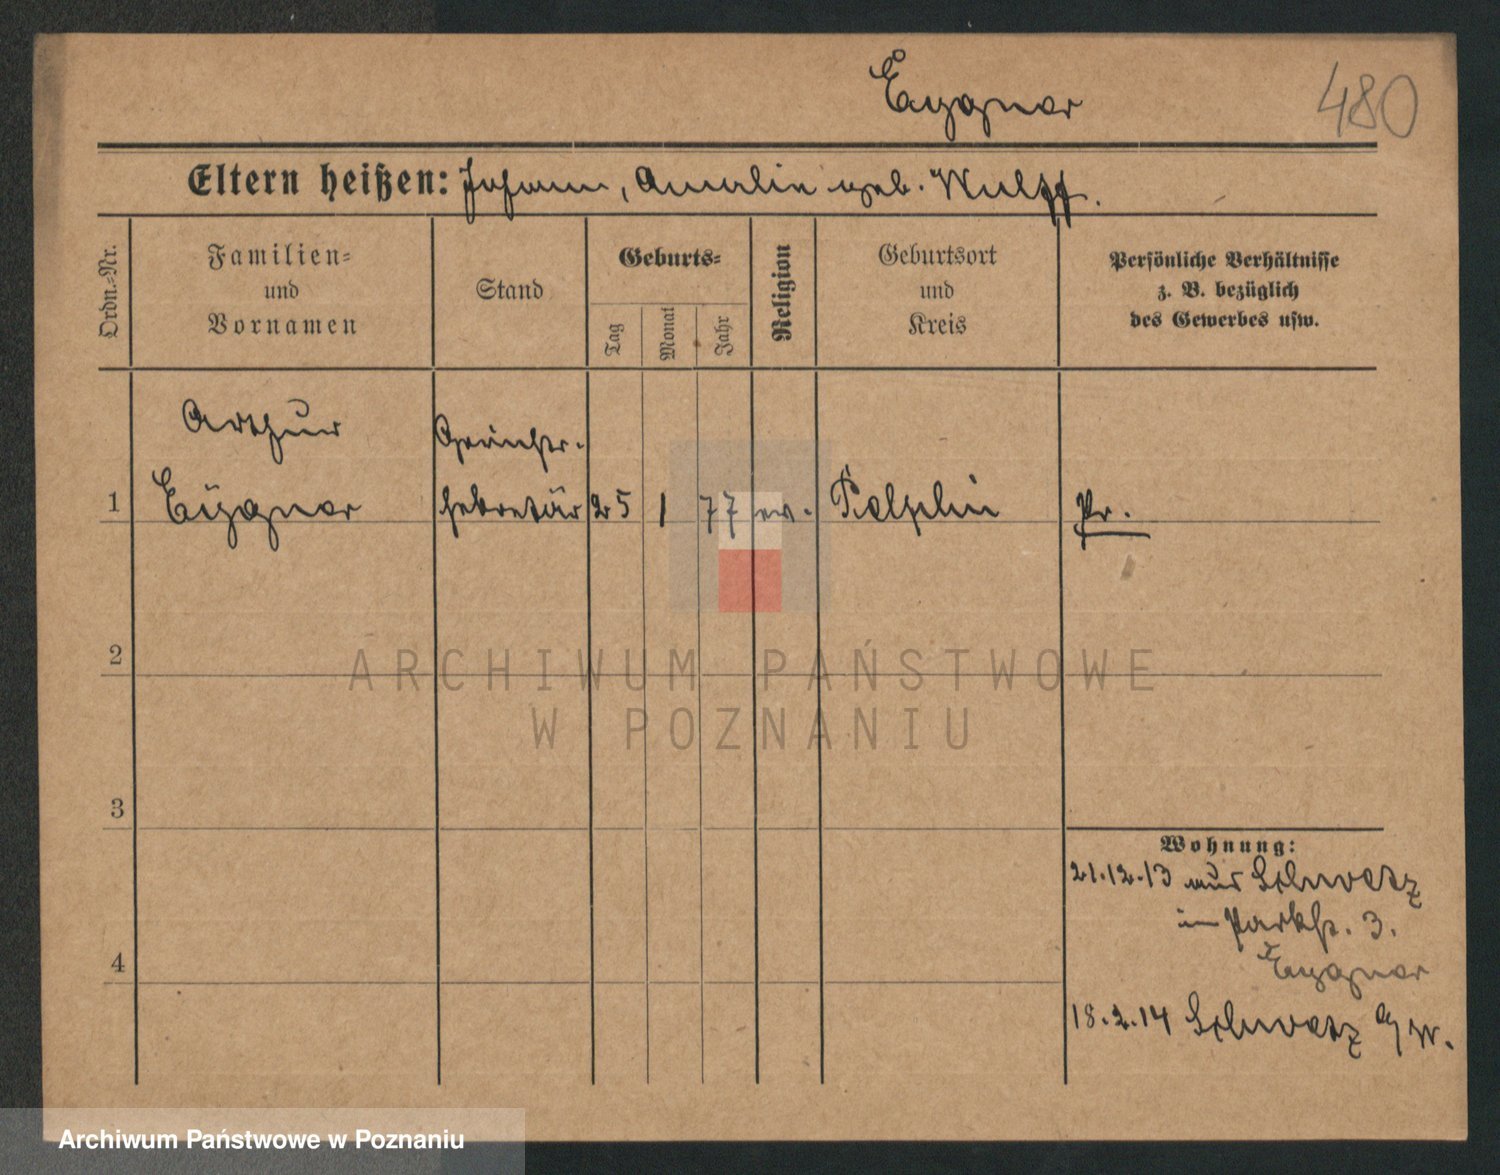 Eyggner
480
Eltern heißen: Johann, Amalie geb. Wulff.
Ordn.-Nr.
Familien-
und
Vornamen
Stand
Geburts-
Tag
Monat
Jahr
Religion
Geburtsort
und
Kreis
Persönliche Verhältnisse
z. B. bezüglich
des Gewerbes usw.
Arthur
Gerichts-
1
sekretär
25
1
77
ev.
Pelplin
Pr.
2
ARCHIWUM PAŃSTWOWE
W POZNANIU
3
Wohnung:
21.12.13 aus Schwetz
Parkstr. 3.
4
18.2.14 Schwetz a/W.
Archiwum Państwowe w Poznaniu